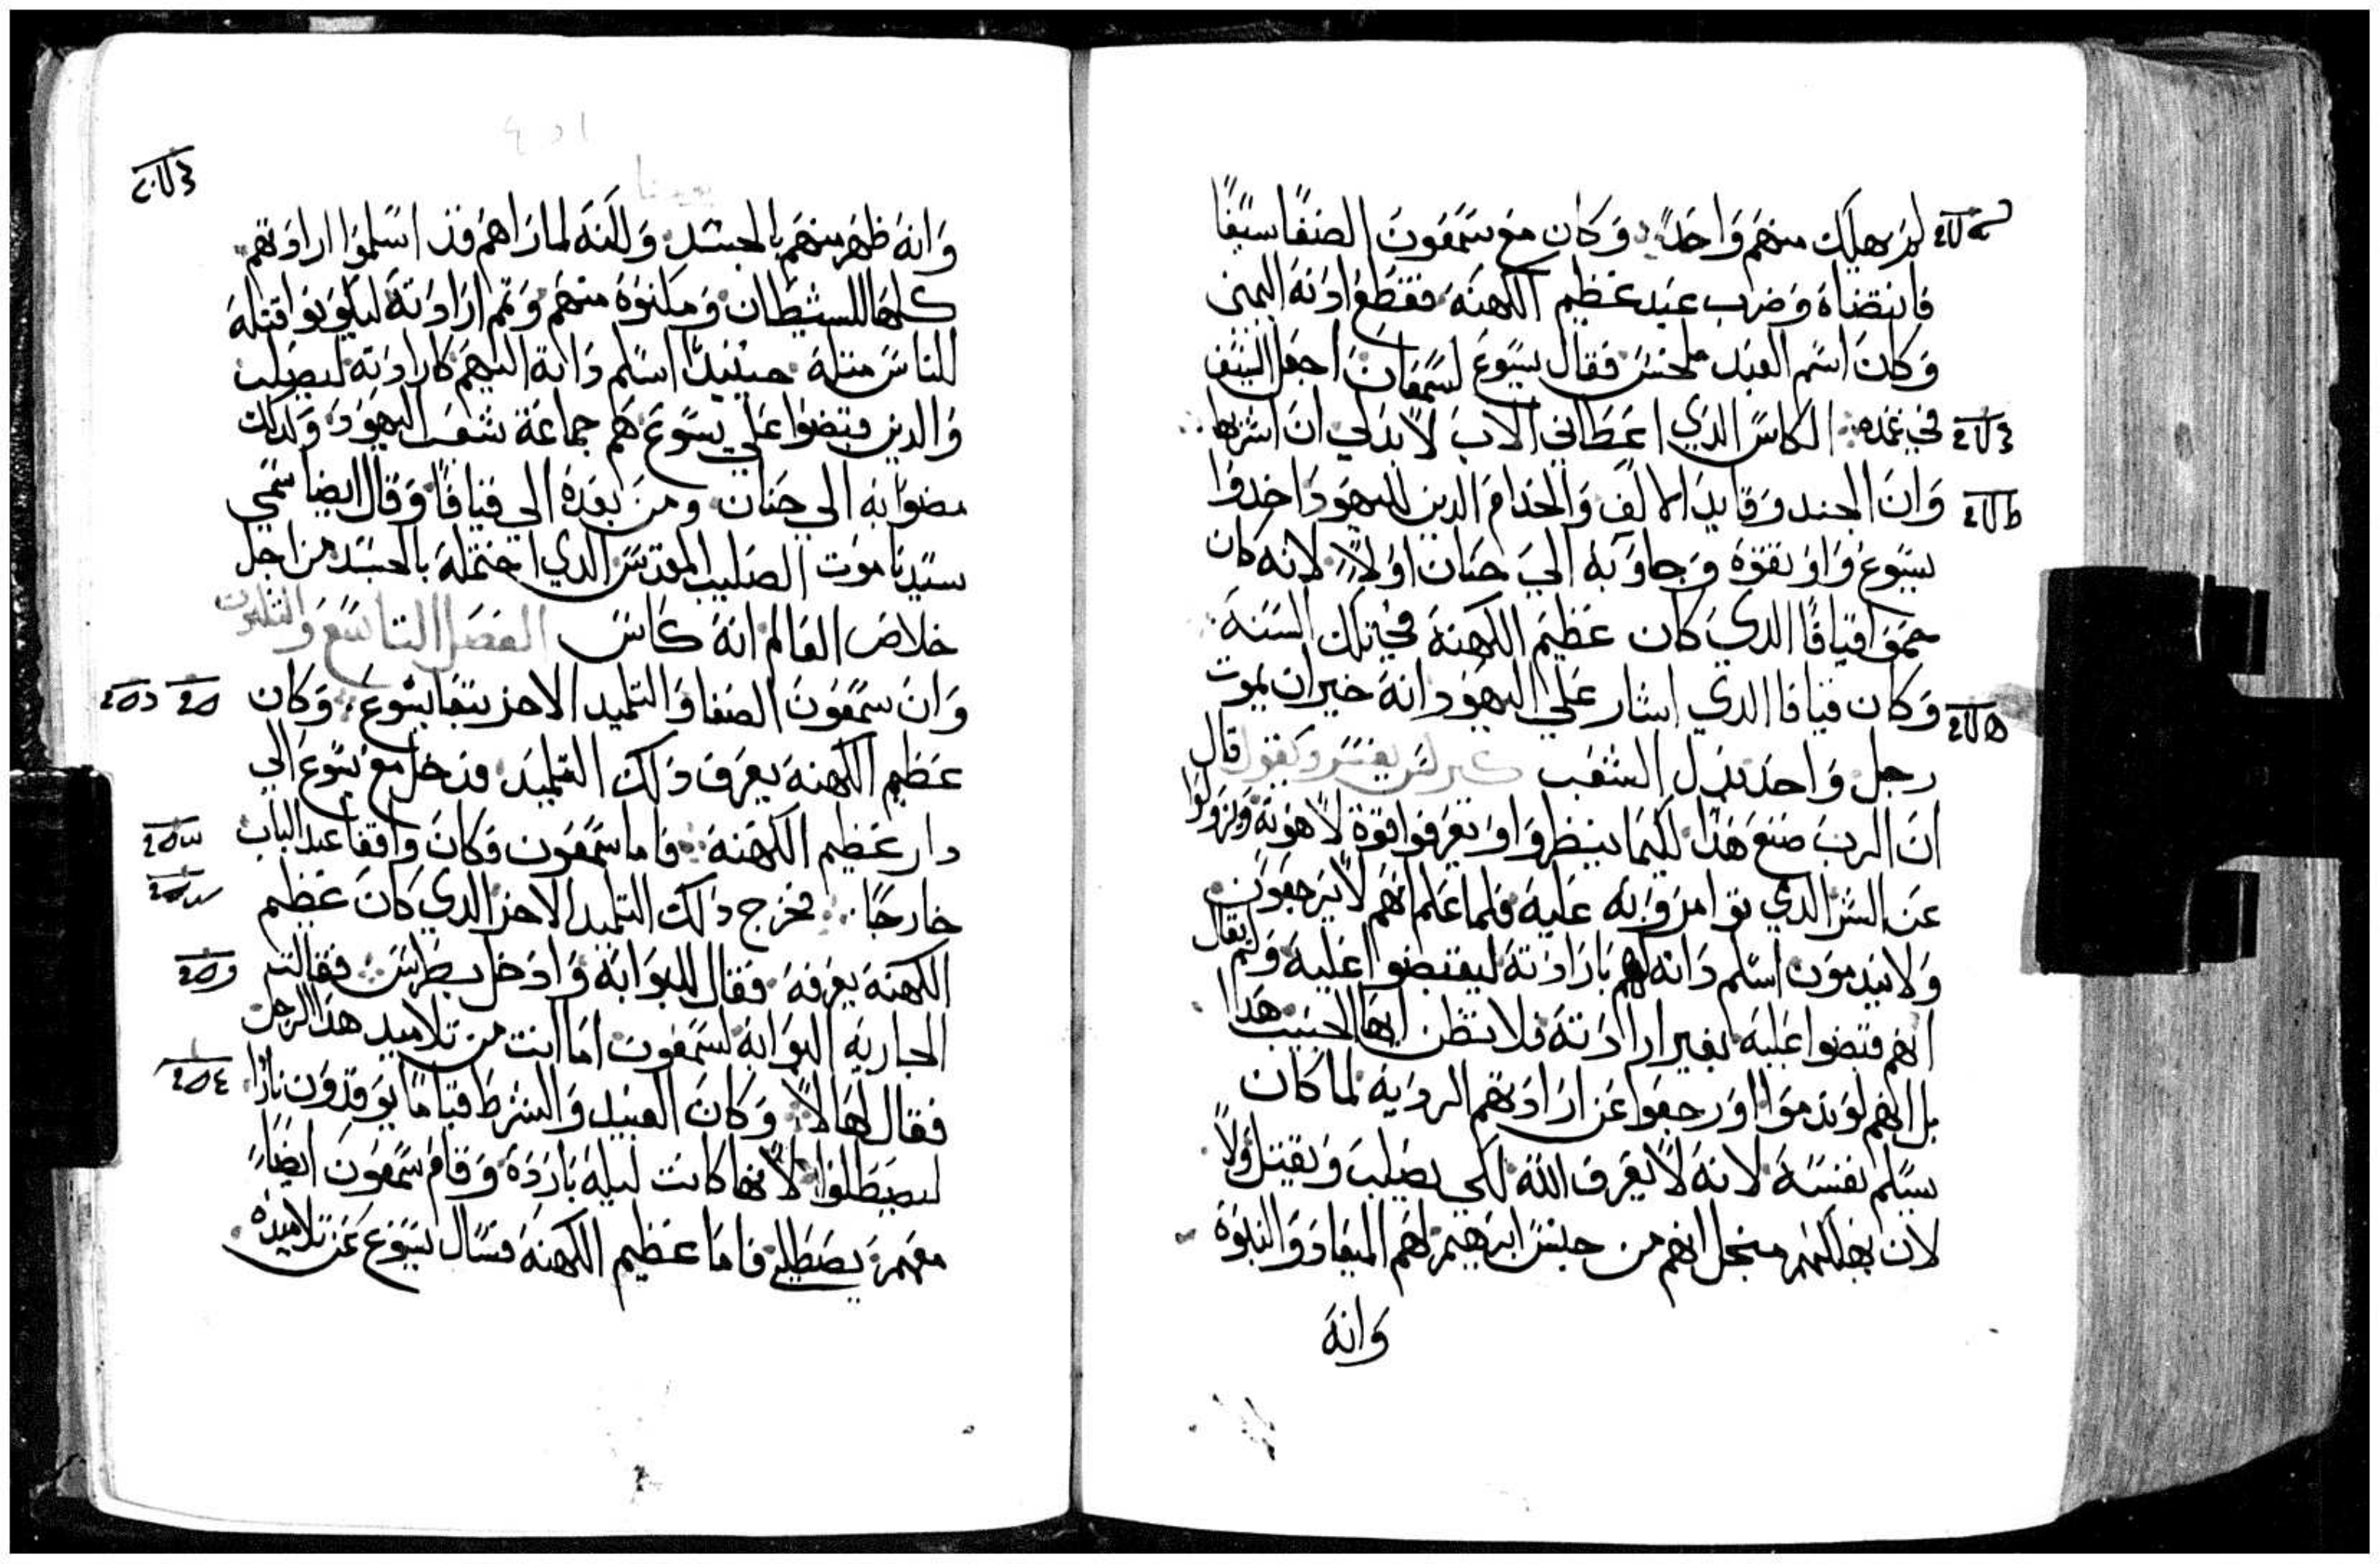 لم يهلك منهم واحد وكان مع سمعون الصفا سيفا
فانتضاه وضرب عبد عظيم الكهنة فقطع ادنه اليمنى
وكان اسم العبد ملخس فقال يسوع لسمعان اجعل السيف
في غمده الكاس الذي اعطاني الاب لا بد لي ان اشربها
وان الجند وقايد الالف والخدام الدين لليهود اخدوا
يسوع واوتقوه وجاوا به الي حنان اولا لانه كان
حمو قيافا الدي كان عظيم الكهنة في تلك السنة
وكان قيافا الدي اشار على اليهود انه خير ان يموت
رجل واحد بدل الشعب يفسر ويقول قال
ان الرب صنع هدا لكيما ينظروا ويعرفوا قوة لاهوته ويزولوا
عن الشر الدي توامروا به عليه فلما علم انهم لا يرجعون
ولا يندمون اسلم داته لهم بارادته ليقبضوا عليه ولم يقال
انهم قبضوا عليه بغير ارادته فلا تظن ايها الحبيب هدا
بل انهم لو ندموا او رجعوا عن ارادتهم الردية لما كان
يسلم نفسه لانه لا يعرف الله لكي يصلب ويقتل ولا
لان يهلكهم منجل انهم من جنس ابرهيم لهم الميعاد والنبوة
وانه
وانه ظهر منهم بالجسد ولكنه لما راهم قد اسلموا ارادتهم
كلها للشيطان وملنوه منهم وتم ارادته ليكونوا قتلة
للناس متله حينيد اسلم داته اليهم كارادته ليصلب
والدين قبضوا علي يسوع هم جماعة شعب اليهود ولدلك
مضوا به الي حنان ومن بعده الي قيافا وقال ايضا سمي
سيدنا موت الصليب المقدس الدي احتمله بالجسد من اجل
خلاص العالم انه كاس الفصل التاسع والتلتون
وان سمعون الصفا والتلميد الاخر تبعا يسوع وكان
عظيم الكهنة يعرف دلك التلميد فدخل مع يسوع الي
دار عظيم الكهنة فاما سمعون فكان واقفا عند الباب
خارجا فخرج دلك التلميد الاخر الدي كان عظيم
الكهنة يعرفه فقال للبوابة وادخل بطرس فقالت
الجارية البوابة لسمعون اما انت من تلاميد هدا الرجل
فقال لها لا وكان العبيد والشرط قياما يوقدون نارا
ليصطلوا لانها كانت ليلة باردة وقام سمعون ايضا
معهم يصطلي فاما عظيم الكهنة فسال يسوع عن تلاميده